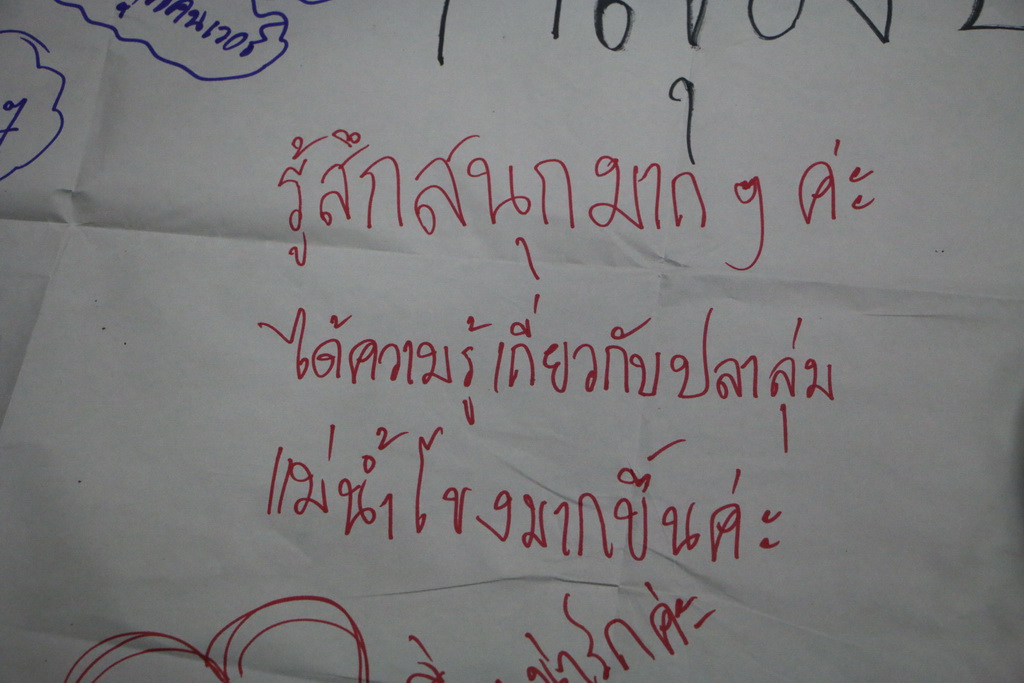 รู้สึกสนุกมากๆ ค่ะ
ได้ความรู้เกี่ยวกับปลาลุ่ม
แม่น้ำโขงมากขึ้นค่ะ
น่ารักค่ะ